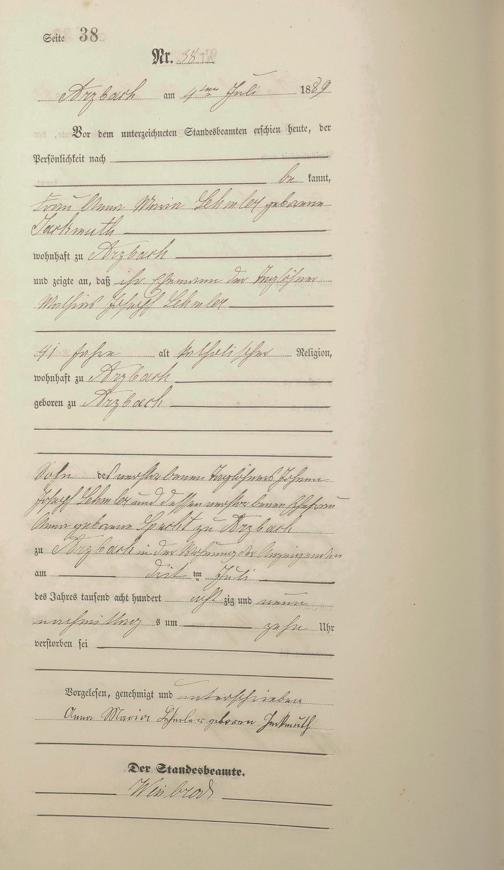 Seite 38
Nr. 38
Arzbach am 4ten Juli 1889
Vor dem unterzeichneten Standesbeamten erschien heute, der
Persönlichkeit nach
be kannt,
Frau Anna Maria geborene
wohnhaft zu Arzbach
und zeigte an, daß ihr Ehemann der Taglöhner
Mathias Joseph
41 Jahre alt katholischer Religion,
wohnhaft zu Arzbach
geboren zu Arzbach
Sohn des verstorbenen Taglöhners Johann
Joseph und dessen verstorbenen Ehefrau
Anna geborene Specht zu Arzbach
zu Arzbach in der Wohnung der Anzeigenden
am dritten Juli
des Jahres tausend acht hundert acht zig und neun
nachmittags um zehn Uhr
verstorben sei
Vorgelesen, genehmigt und unterschrieben
Anna Maria geboren
Der Standesbeamte.
Weisbrod